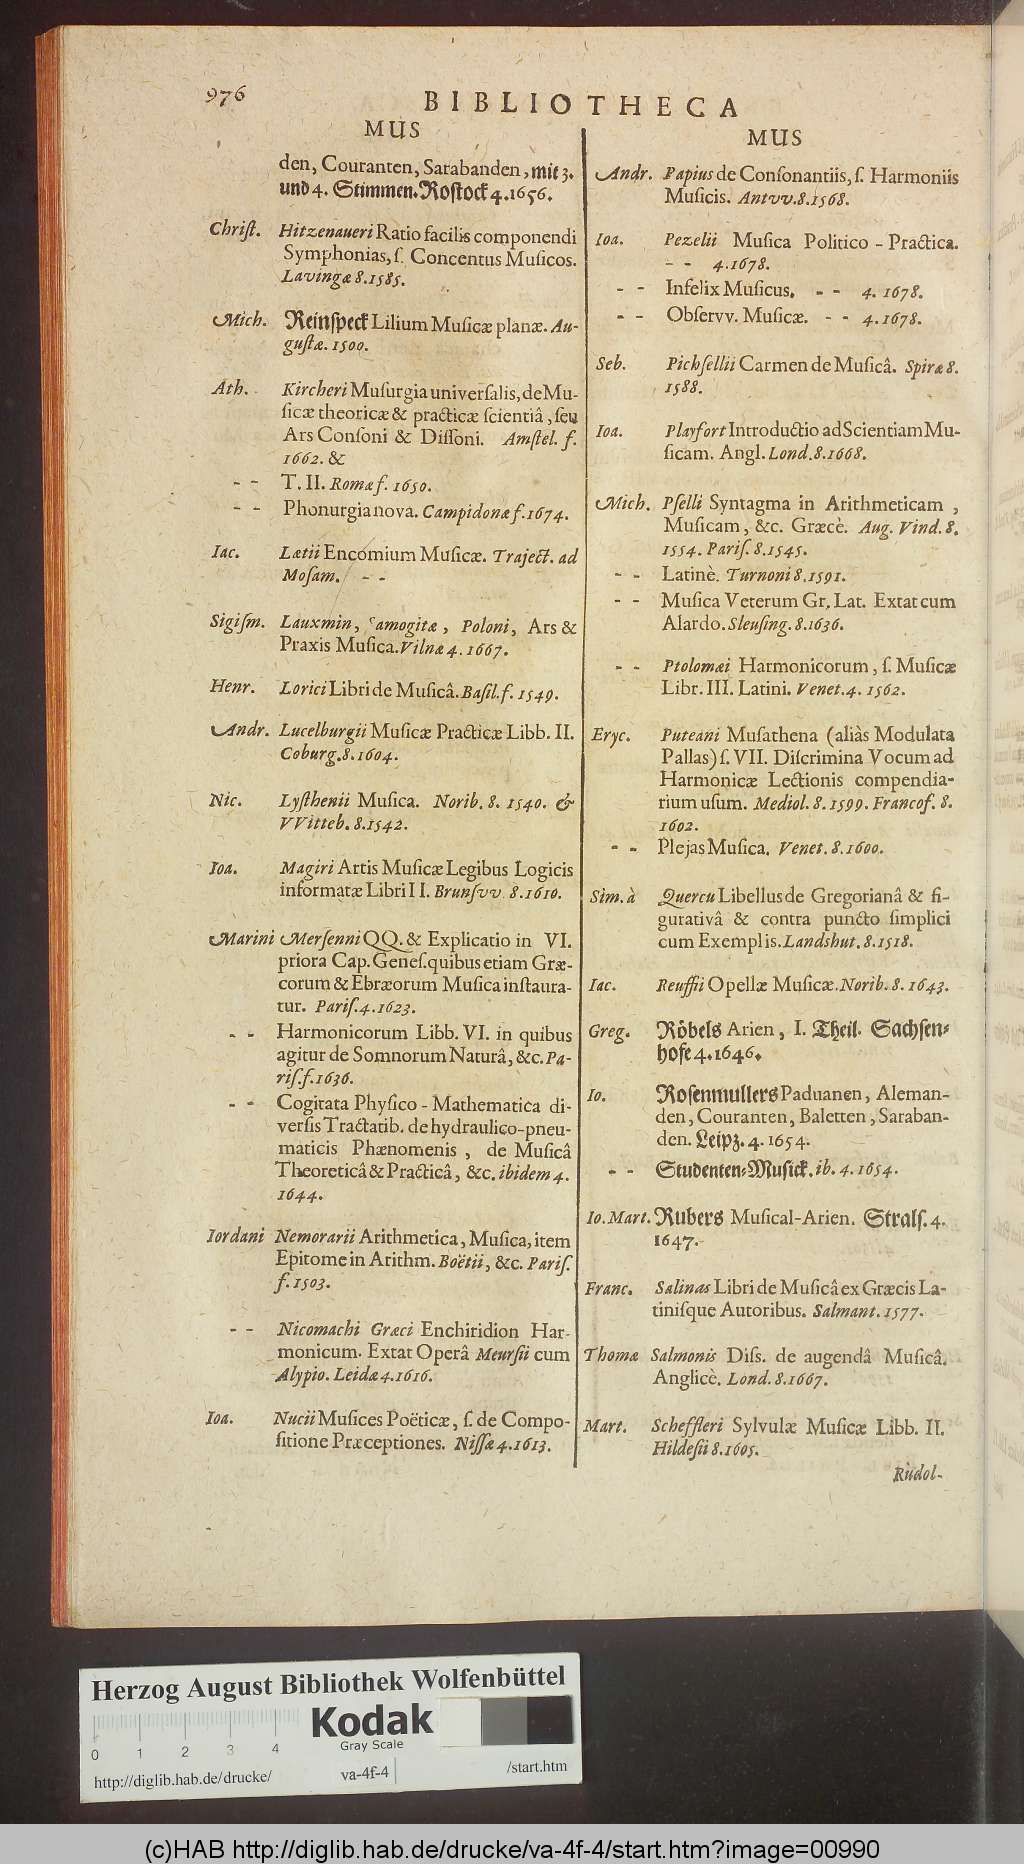 976
BIBLIOTHECA
MUS
den, Couranten, Sarabanden, mit 3.
und 4. Stimmen. Rostock 4. 1656.
Christ. Hitzenaueri Ratio facilis componendi
Symphonias, ſ. Concentus Muſicos.
Lavingæ 8. 1585.
Mich. Reinſpeck Lilium Muſicæ planæ. Au-
guſtæ. 1500.
Ath. Kircheri Muſurgia univerſalis, de Mu-
ſicæ theoricæ & practicæ ſcientiâ, ſeu
Ars Conſoni & Diſſoni. Amſtel. f.
1662. &
- - T. II. Romæ f. 1650.
- - Phonurgia nova. Campidonæ f. 1674.
Iac. Lætii Encomium Muſicæ. Traject. ad
Moſam. - -
Sigiſm. Lauxmin, amogitæ, Poloni, Ars &
Praxis Muſica. Vilnæ 4. 1667.
Henr. Lorici Libri de Muſicâ. Baſil. f. 1549.
Andr. Lucelburgii Muſicæ Practicæ Libb. II.
Coburg. 8. 1604.
Nic. Lyſthenii Muſica. Norib. 8. 1540. &
VVitteb. 8. 1542.
Ioa. Magiri Artis Muſicæ Legibus Logicis
informatæ Libri II. Brunſvv. 8. 1610.
Marini Merſenni QQ. & Explicatio in VI.
priora Cap. Geneſ. quibus etiam Græ-
corum & Ebræorum Muſica inſtaura-
tur. Pariſ. 4. 1623.
- - Harmonicorum Libb. VI. in quibus
agitur de Somnorum Naturâ, &c. Pa-
riſ. f. 1636.
- - Cogitata Phyſico - Mathematica di-
verſis Tractatib. de hydraulico-pneu-
maticis Phænomenis, de Muſicâ
Theoreticâ & Practicâ, &c. ibidem 4.
1644.
Iordani Nemorarii Arithmetica, Muſica, item
Epitome in Arithm. Boëtii, &c. Pariſ.
f. 1503.
- - Nicomachi Græci Enchiridion Har-
monicum. Extat Operâ Meurſii cum
Alypio. Leidæ 4. 1616.
Ioa. Nucii Muſices Poëticæ, ſ. de Compo-
ſitione Præceptiones. Niſſæ 4. 1613.
MUS
Andr. Papius de Conſonantiis, ſ. Harmoniis
Muſicis. Antvv. 8. 1568.
Ioa. Pezelii Muſica Politico - Practica.
- - 4. 1678.
- - Infelix Muſicus. - - 4. 1678.
- - Obſervv. Muſicæ. - - 4. 1678.
Seb. Pichſellii Carmen de Muſicâ. Spiræ 8.
1588.
Ioa. Playfort Introductio ad Scientiam Mu-
ſicam. Angl. Lond. 8. 1668.
Mich. Pſelli Syntagma in Arithmeticam,
Muſicam, &c. Græcè. Aug. Vind. 8.
1554. Pariſ. 8. 1545.
- - Latinè. Turnoni 8. 1591.
- - Muſica Veterum Gr. Lat. Extat cum
Alardo. Sleuſing. 8. 1636.
- - Ptolomæi Harmonicorum, ſ. Muſicæ
Libr. III. Latini. Venet. 4. 1562.
Eryc. Puteani Muſathena (aliàs Modulata
Pallas) ſ. VII. Diſcrimina Vocum ad
Harmonicæ Lectionis compendia-
rium uſum. Mediol. 8. 1599. Francof. 8.
1602.
- - Plejas Muſica. Venet. 8. 1600.
Sim. à Quercu Libellus de Gregorianâ & fi-
gurativâ & contra puncto ſimplici
cum Exemplis. Landshut. 8. 1518.
Iac. Reuffii Opellæ Muſicæ. Norib. 8. 1643.
Greg. Röbels Arien, I. Theil. Sachſen-
hofe 4. 1646.
Io. Roſenmullers Paduanen, Aleman-
den, Couranten, Baletten, Saraban-
den. Leipz. 4. 1654.
- - Studenten-Muſick. ib. 4. 1654.
Io. Mart. Rubers Muſical-Arien. Stralſ. 4.
1647.
Franc. Salinas Libri de Muſicâ ex Græcis La-
tiniſque Autoribus. Salmant. 1577.
Thomæ Salmonis Diſſ. de augendâ Muſicâ.
Anglicè. Lond. 8. 1667.
Mart. Scheffleri Sylvulæ Muſicæ Libb. II.
Hildeſii 8. 1605.
Rudol-
Herzog August Bibliothek Wolfenbüttel
Kodak
Gray Scale
0 1 2 3 4
http://diglib.hab.de/drucke/ va-4f-4 /start.htm
(c)HAB http://diglib.hab.de/drucke/va-4f-4/start.htm?image=00990